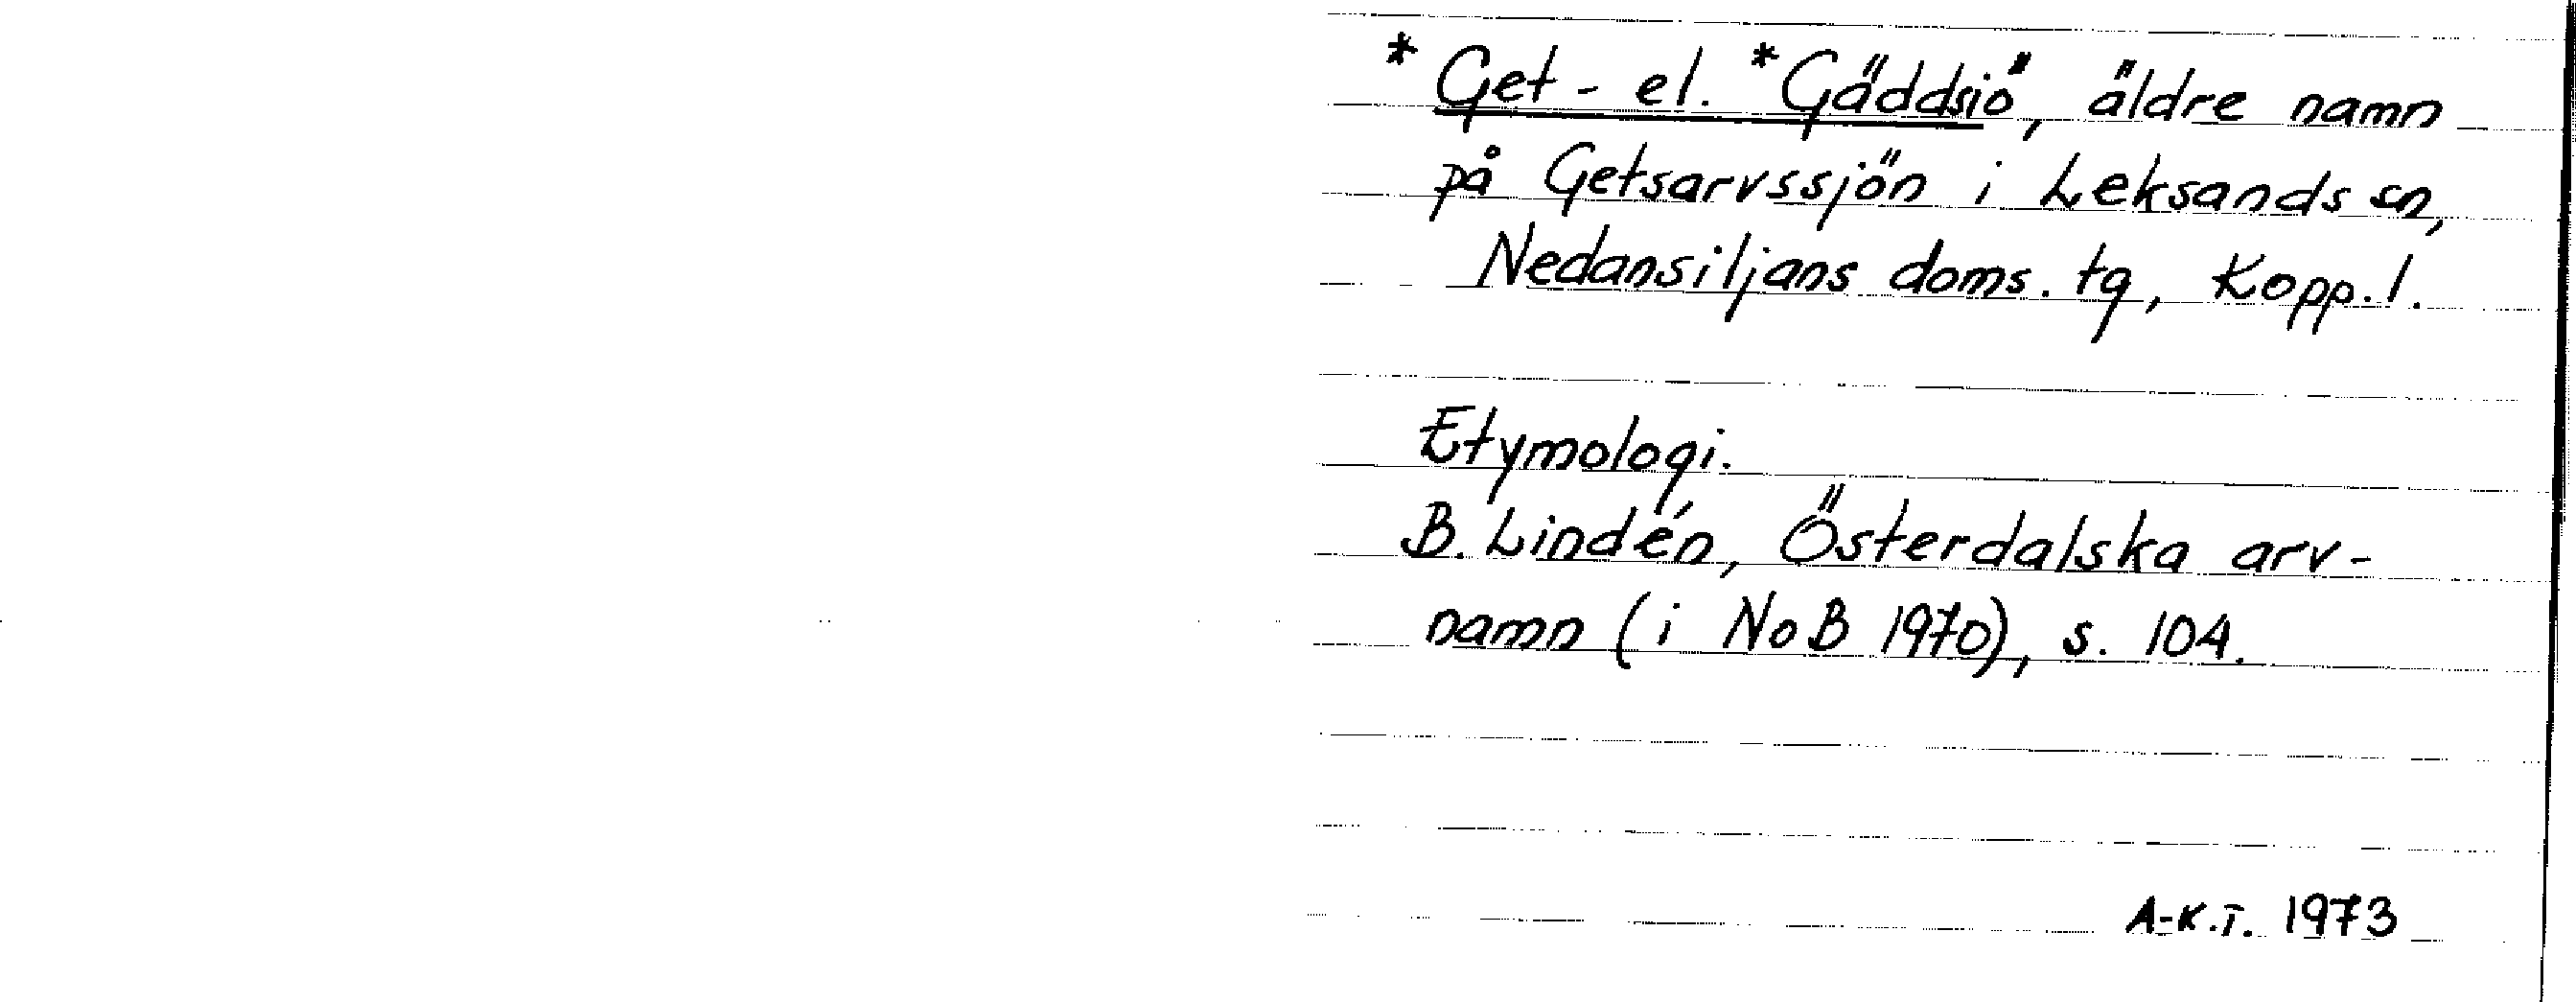 * Get- el. *Gäddsiö, äldre namn
på Getsarvssjön i Leksands sn,
Nedansiljans doms. tg, Kopp. l.
Etymologi.
B. Lindén, Österdalska arv-
namn (i NoB 1970), s. 104.
A-K.T. 1973